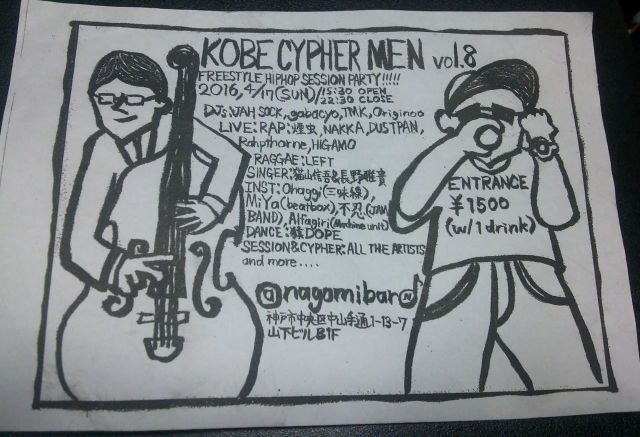 KOBE CYPHER MEN vol.8
FREESTYLE HIPHOP SESSION PARTY!!!!!
2016,4/17(SUN)/15:30 OPEN
22:30 CLOSE
DJs:JAH SOCK, gabacyo, TMK, Originoo
LIVE:RAP:煙虫, NAKKA, DUSTPAN,
Rahpthorne, HIGAMO
RAGGAE:LEFT
SINGER:猫山信吾&長野雅貴
INST:Ohaggi(三味線),
MiYa(beatbox),不忍(JAM
BAND), Alfagiri(Machine unit)
DANCE:DOPE
SESSION&CYPHER:ALL THE ARTISTS
and more....
@nagomibar
神戸市中央区中山手通1-13-7
山下ビルB1F
ENTRANCE
¥1500
(w/1drink)